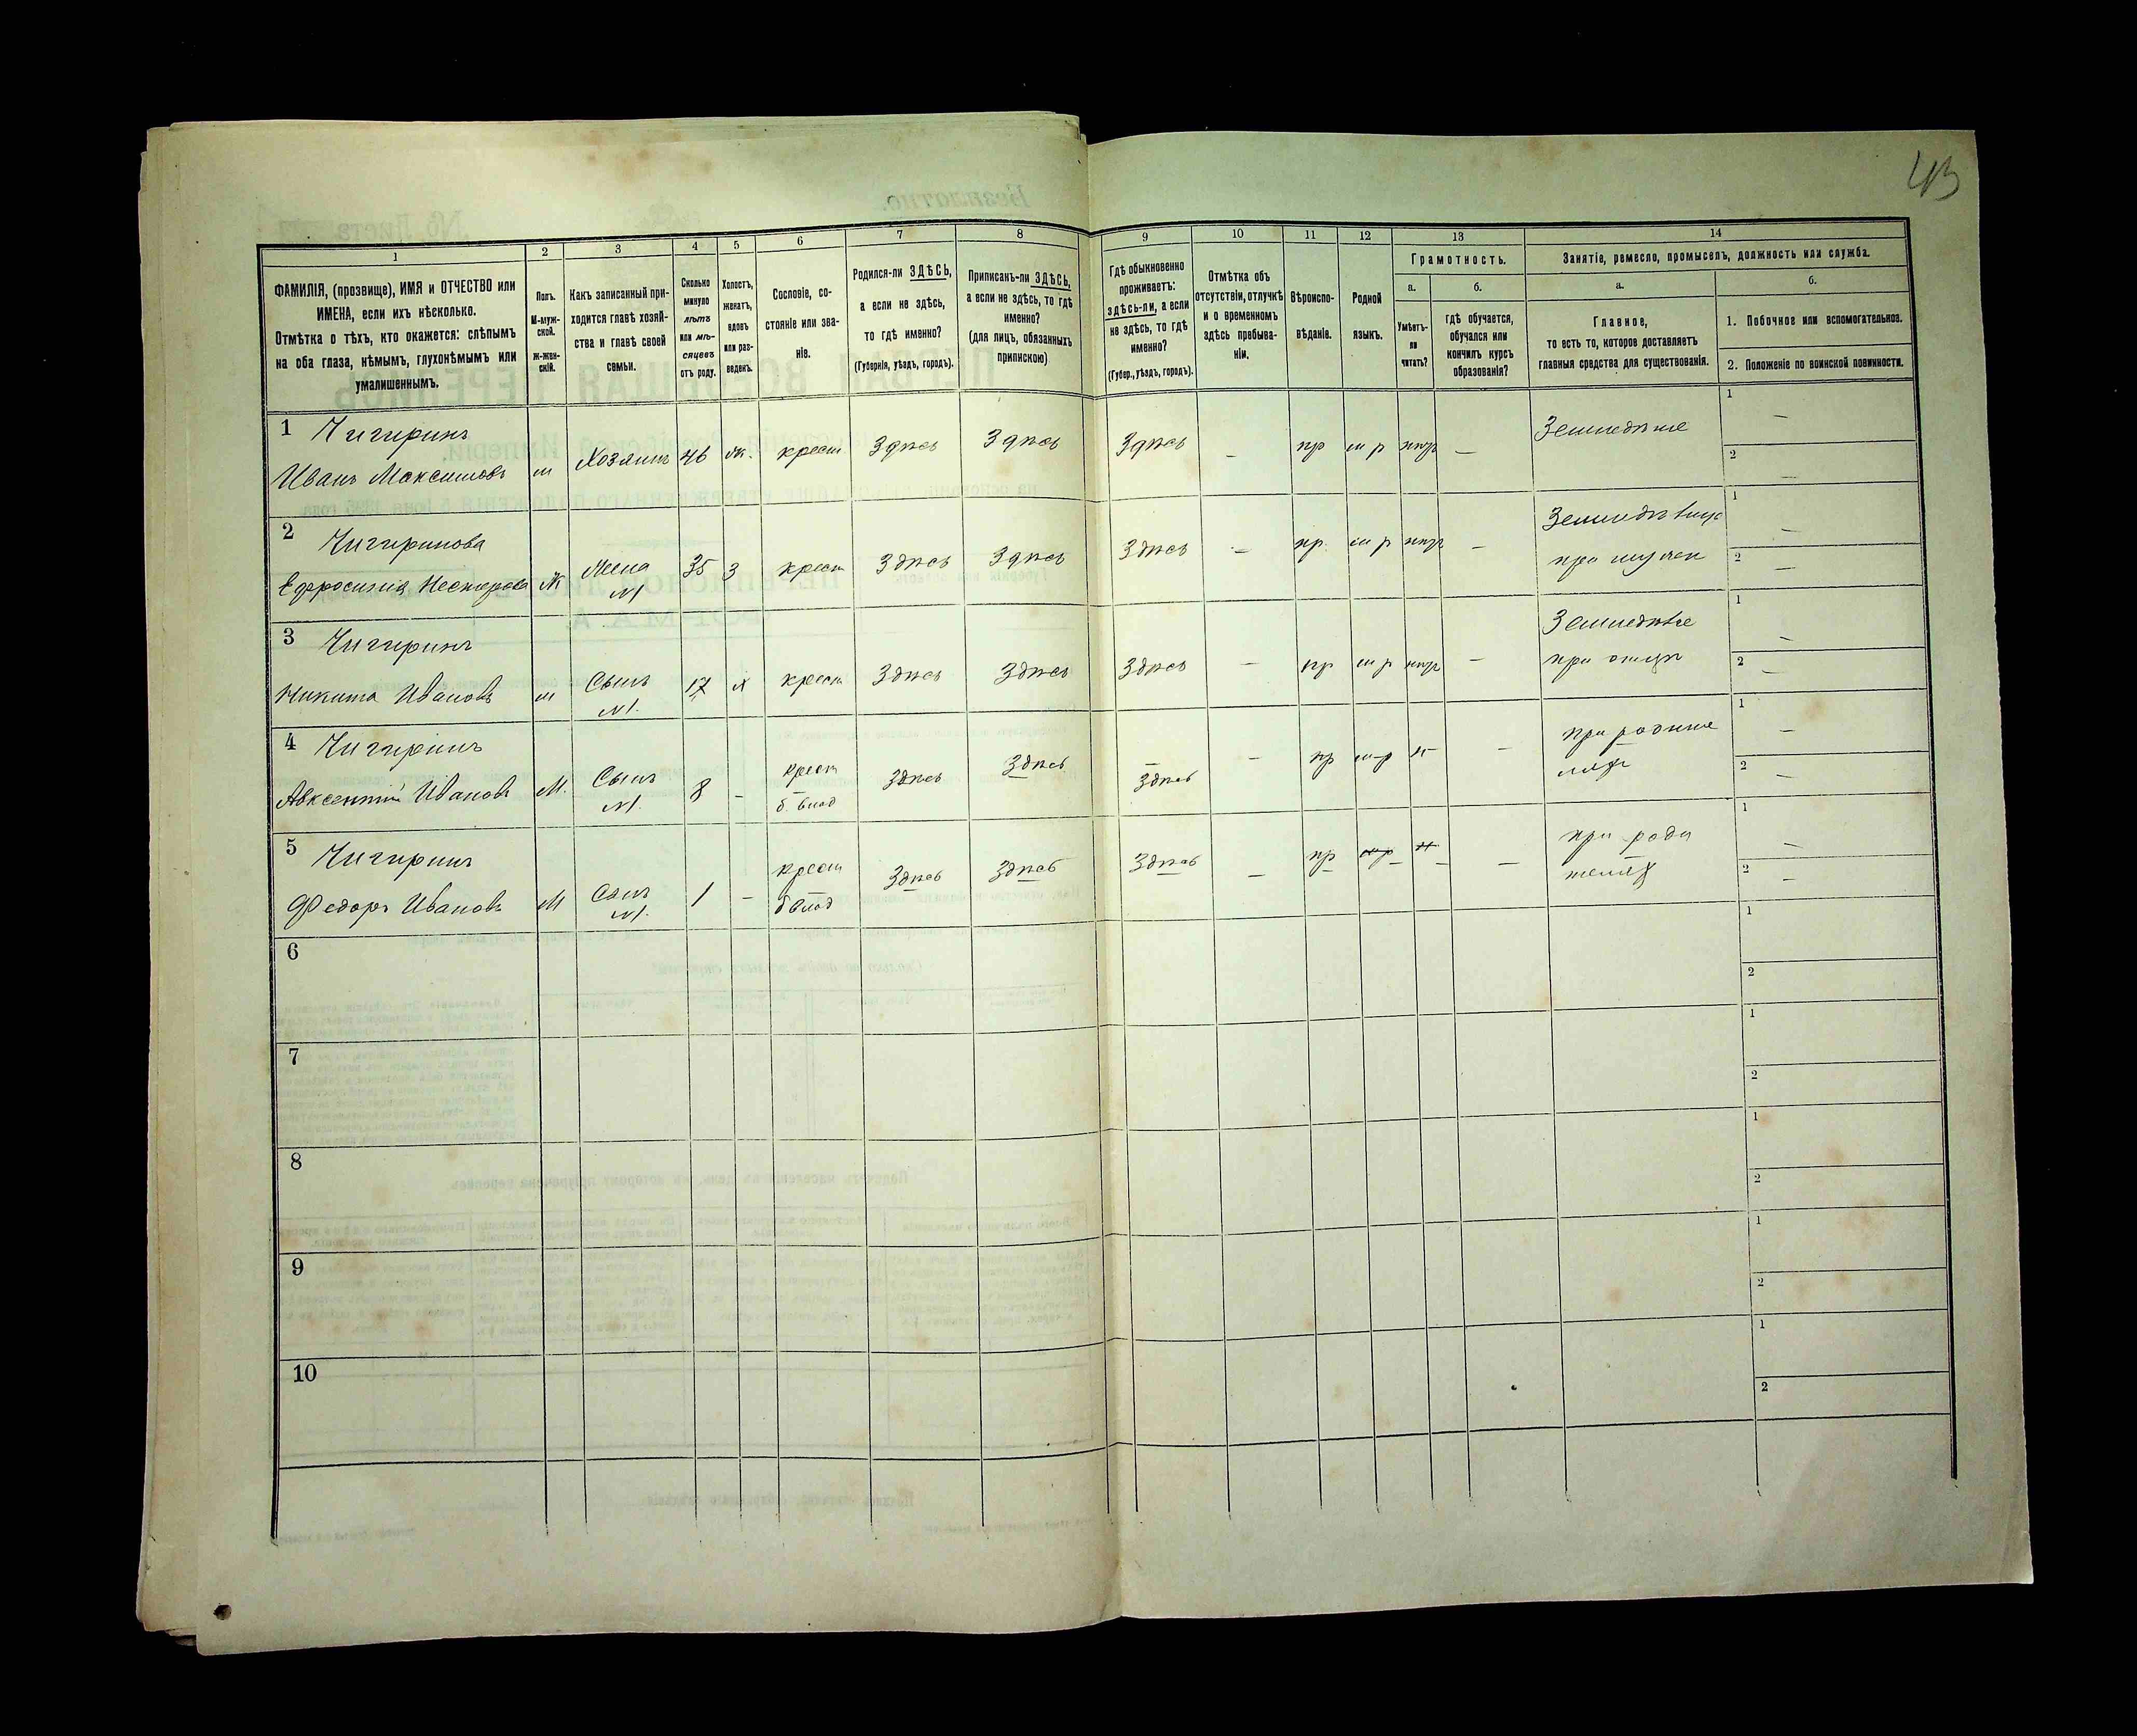 43
1
2
3
4
5
6
7
8
9
10
11
12
13
14
ФАМИЛІЯ, (прозвище), ИМЯ и ОТЧЕСТВО или
ИМЕНА, если ихъ нѣсколько.
Отмѣтка о тѣхъ, кто окажется: слѣпымъ
на оба глаза, нѣмымъ, глухонѣмымъ или
умалишеннымъ.
Полъ.
М-муж-
ской.
ж-жен-
скій.
Какъ записанный при-
ходится главѣ хозяй-
ства и главѣ своей
семьи.
Сколько
минуло
лѣтъ
или мѣ-
сяцевъ
отъ роду.
Холостъ,
женатъ,
вдовъ
или раз-
веденъ.
Сословіе, со-
стояніе или зва-
ніе.
Родился-ли ЗДѢСЬ,
а если не здѣсь,
то гдѣ именно?
(Губернія, уѣздъ, городъ).
Приписанъ-ли ЗДѢСЬ,
а если не здѣсь, то гдѣ
именно?
(для лицъ, обязанныхъ
припискою)
Гдѣ обыкновенно
проживаетъ:
здѣсь-ли, а если
не здѣсь, то гдѣ
именно?
(Губер., уѣздъ, городъ).
Отмѣтка объ
отсутствіи, отлучкѣ
и о временномъ
здѣсь пребыва-
ніи.
Вѣроиспо-
вѣданіе.
Родной
языкъ.
Грамотность.
а.
Умѣетъ-
ли
читать?
б.
гдѣ обучается,
обучался или
кончилъ курсъ
образованія?
Занятіе, ремесло, промыселъ, должность или служба.
а.
Главное,
то есть то, которое доставляетъ
главныя средства для существованія.
б.
1. Побочное или вспомогательное.
2. Положеніе по воинской повинности.
1 Чигиринъ
Иванъ Максимовъ м Хозяинъ 46 ж. крест Здѣсь Здѣсь Здѣсь – пр м р – Земледѣліе
1 –
2 –
2 Чигиринова
Ефросинія Нестерова Ж Жена 35 З крест Здѣсь Здѣсь Здѣсь – пр. м р –
при мужѣ
1 –
2 –
3 Чигиринъ
Никита Ивановъ м Сынъ 17 х крест Здѣсь Здѣсь Здѣсь – пр м р – Земледѣліе
при отцѣ
1 –
2 –
4 Чигиринъ
Авксентій Ивановъ М. Сынъ 8 – крест Здѣсь Здѣсь Здѣсь – пр м р н –
1 –
2 –
5 Чигиринъ
Федоръ Ивановъ М Сынъ 1 – крест Здѣсь Здѣсь Здѣсь – пр м р н – при роди
теляхъ
1 –
2 –
6
1
2
7
1
2
8
1
2
9
1
2
10
1
2